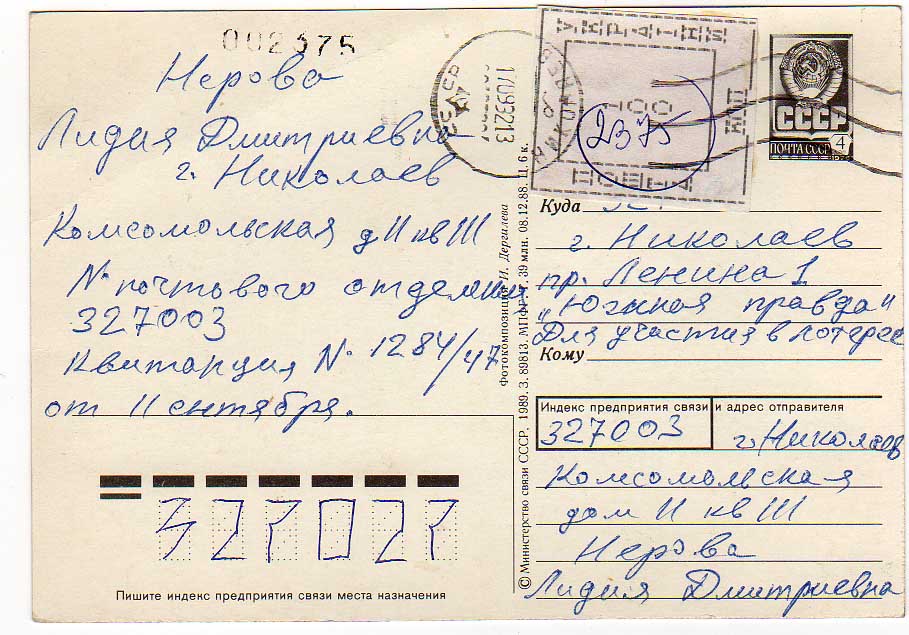 002375
Нерова
Лидия Дмитриевна
г. Николаев
Комсомольская д 11 кв 111
N почтового отделения
327003
Квитанция N 1284/47
от 11 сентября.
2375
СССР
ПОЧТА СССР 4
Куда
г. Николаев
пр. Ленина 1
"Южная правда"
Для участия в лотерее
Кому
Индекс предприятия связи и адрес отправителя
327003 г. Николаев
Комсомольская
дом 11 кв 111
Нерова
Лидия Дмитриевна
327027
Пишите индекс предприятия связи места назначения
© Министерство связи СССР. 1989. З. 89813. МПФГ. Т. 39 млн. 08.12.88. Ц. 6 к.
Фотокомпозиция Н. Дергилева